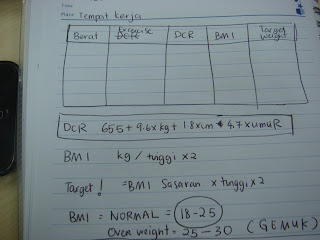 Place Tempat kerja
Berat Exercise DCR BMI Target weight
DCR 655 + 9.6 x kg + 1.8 x cm + 4.7 x umuR
BMI kg / tinggi x 2
Target! = BMI Sasaran x tinggi x 2
BMI = NORMAL = 18-25
Over weight = 25-30 (GEMUK)